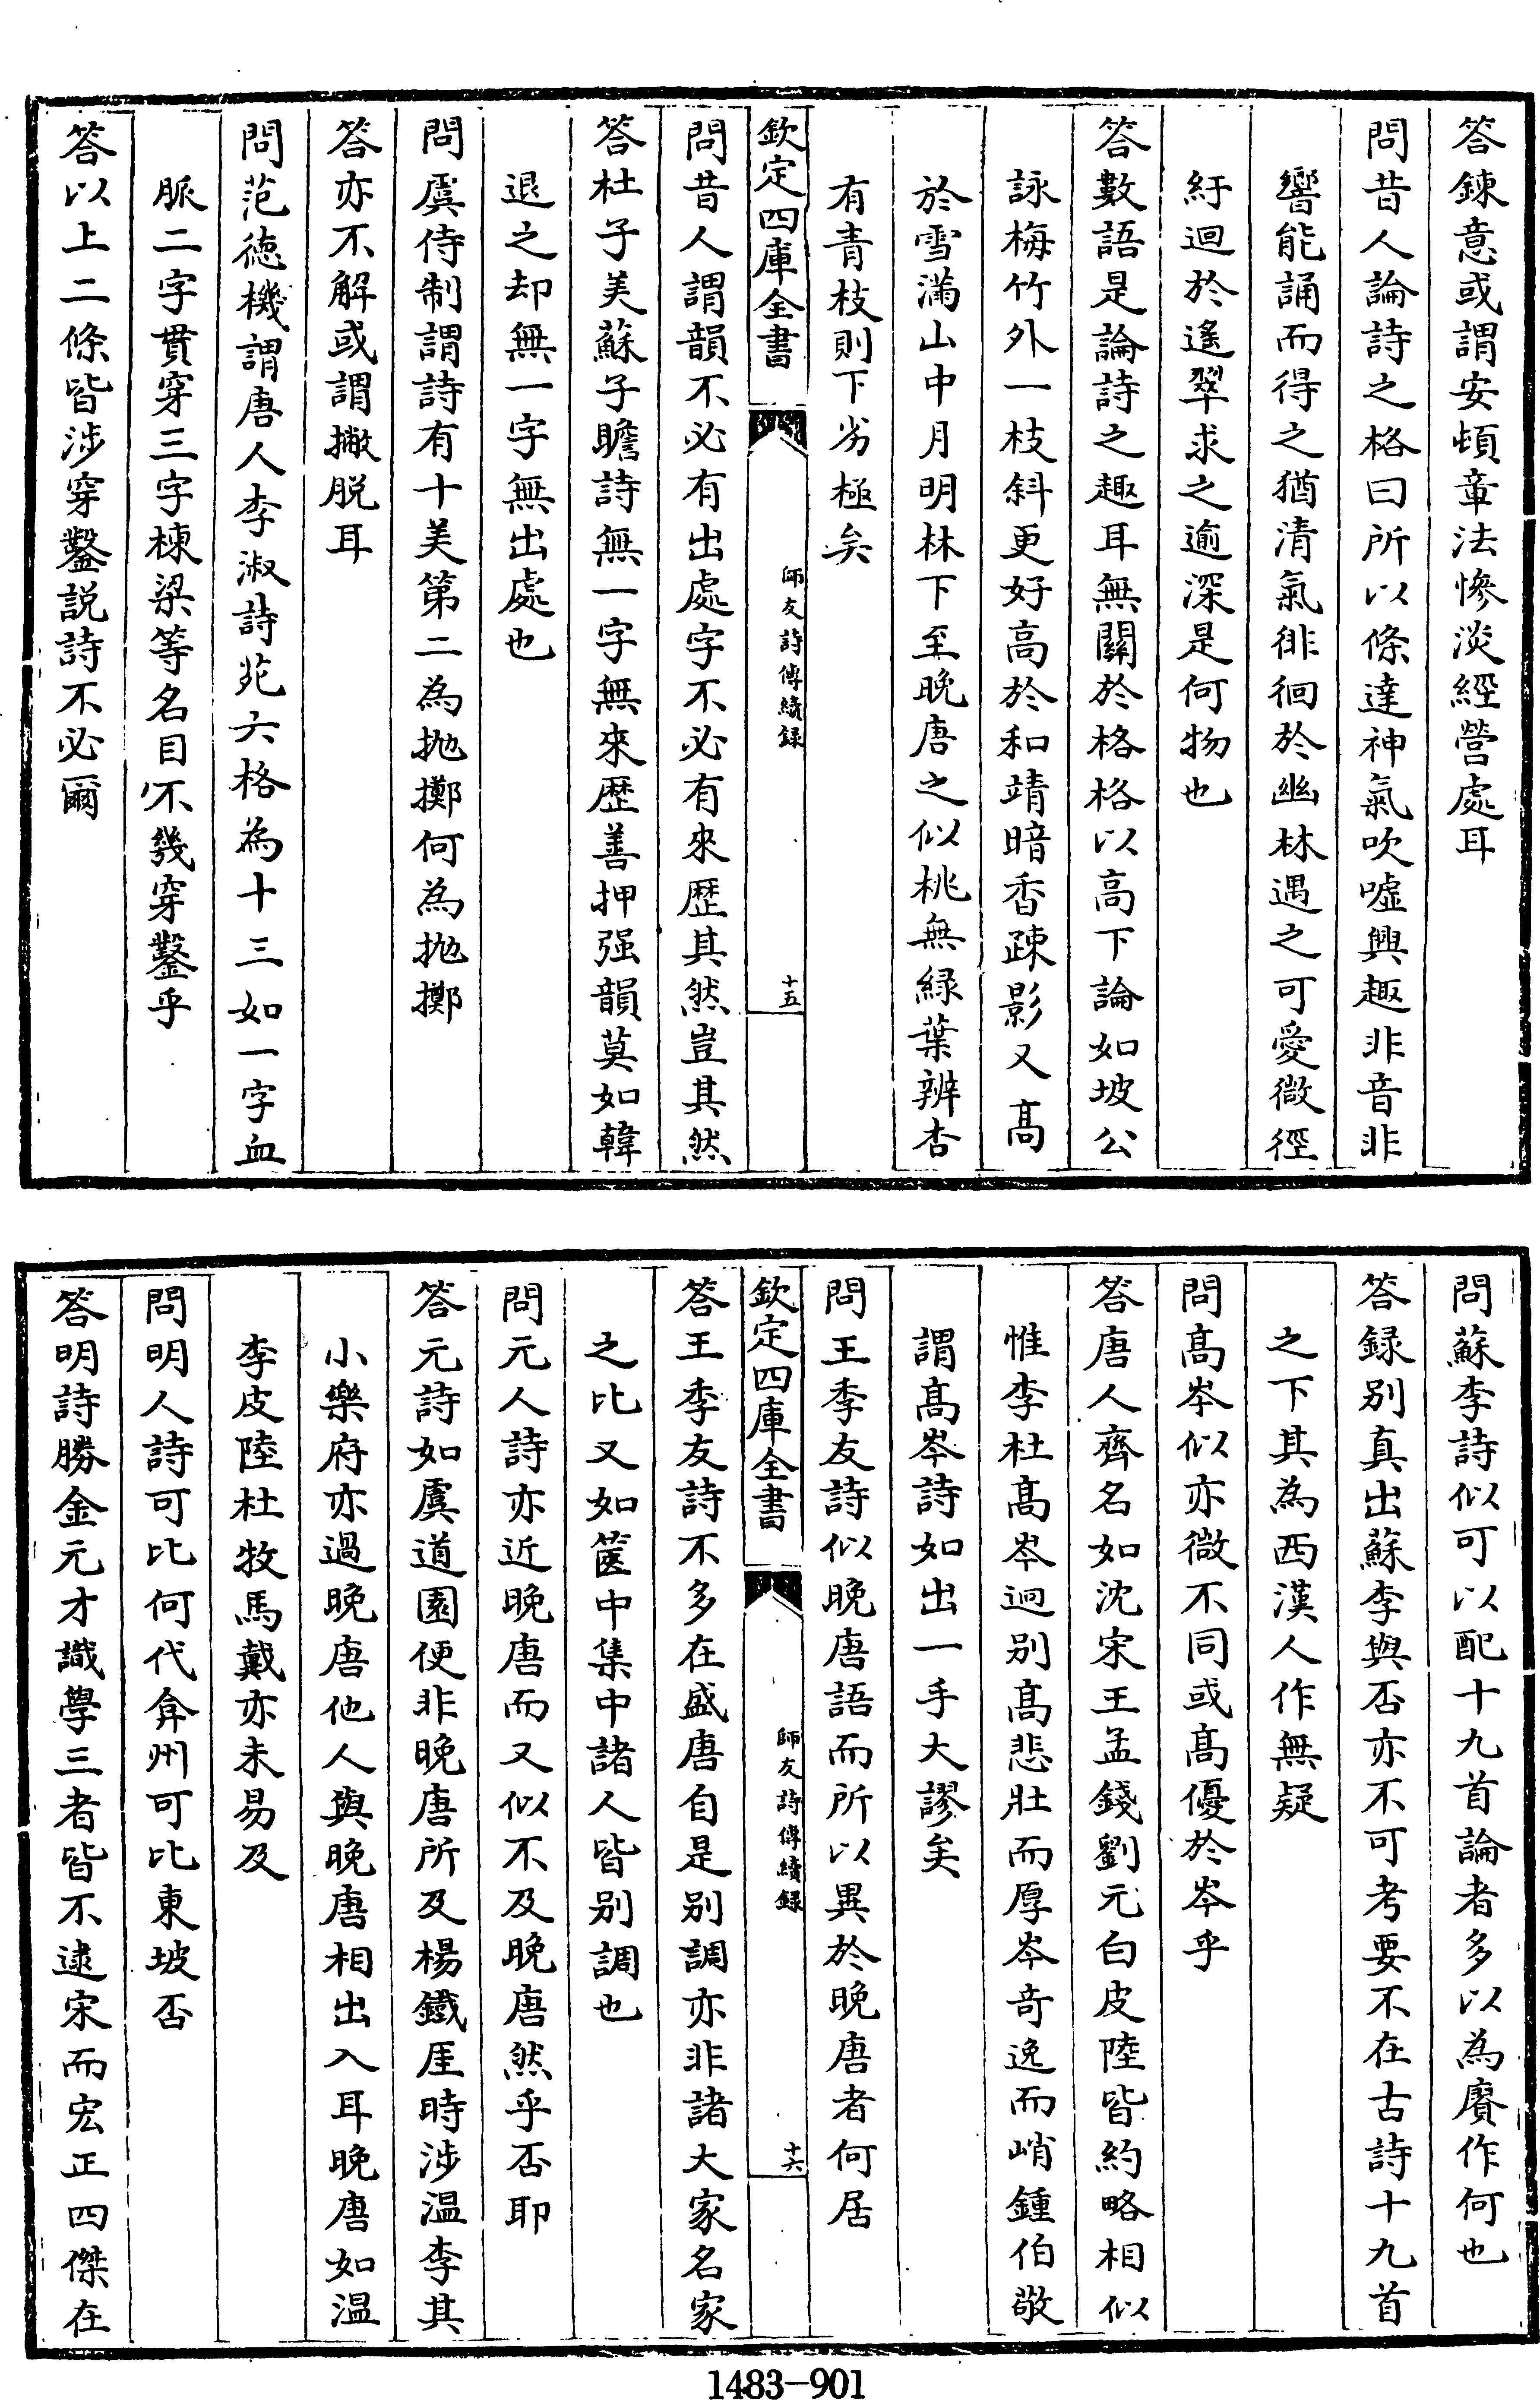 答鍊意或謂安頓章法慘淡經營處耳
問昔人論詩之格曰所以條達神氣吹噓興趣非音非
響能誦而得之猶清氣徘徊於幽林遇之可愛微徑
紆迴於遙翠求之逾深是何物也
答數語是論詩之趣耳無關於格格以高下論如坡公
詠梅竹外一枝斜更好高於和靖暗香疎影又髙
於雪滿山中月明林下至晚唐之似桃無緑葉辨杏
有青枝則下劣極矣
欽定四庫全書
師友詩傳續録
十五
問昔人謂韻不必有出處字不必有來歴其然豈其然
答杜子美蘇子瞻詩無一字無來歴善押强韻莫如韓
退之却無一字無出處也
問虞侍制謂詩有十美第二為抛擲何為抛擲
答亦不解或謂撇脱耳
問范德機謂唐人李淑詩苑六格為十三如一字血
脈二字貫穿三字棟梁等名目不幾穿鑿乎
答以上二條皆涉穿鑿説詩不必爾
問蘇李詩似可以配十九首論者多以為贋作何也
答録别真出蘇李與否亦不可考要不在古詩十九首
之下其為西漢人作無疑
問髙岑似亦微不同或髙優於岑乎
答唐人齊名如沈宋王孟錢劉元白皮陸皆約略相似
惟李杜髙岑迥别髙悲壯而厚岑奇逸而峭鍾伯敬
謂髙岑詩如出一手大謬矣
問王季友詩似晚唐語而所以異於晚唐者何居
欽定四庫全書
師友詩傳續録
十六
答王季友詩不多在盛唐自是别調亦非諸大家名家
之比又如篋中集中諸人皆别調也
問元人詩亦近晚唐而又似不及晚唐然乎否耶
答元詩如虞道園便非晚唐所及楊鐵厓時涉温李其
小樂府亦過晚唐他人與晚唐相出入耳晚唐如温
李皮陸杜牧馬戴亦未易及
問明人詩可比何代弇州可比東坡否
答明詩勝金元才識學三者皆不逮宋而宏正四傑在
1483-901